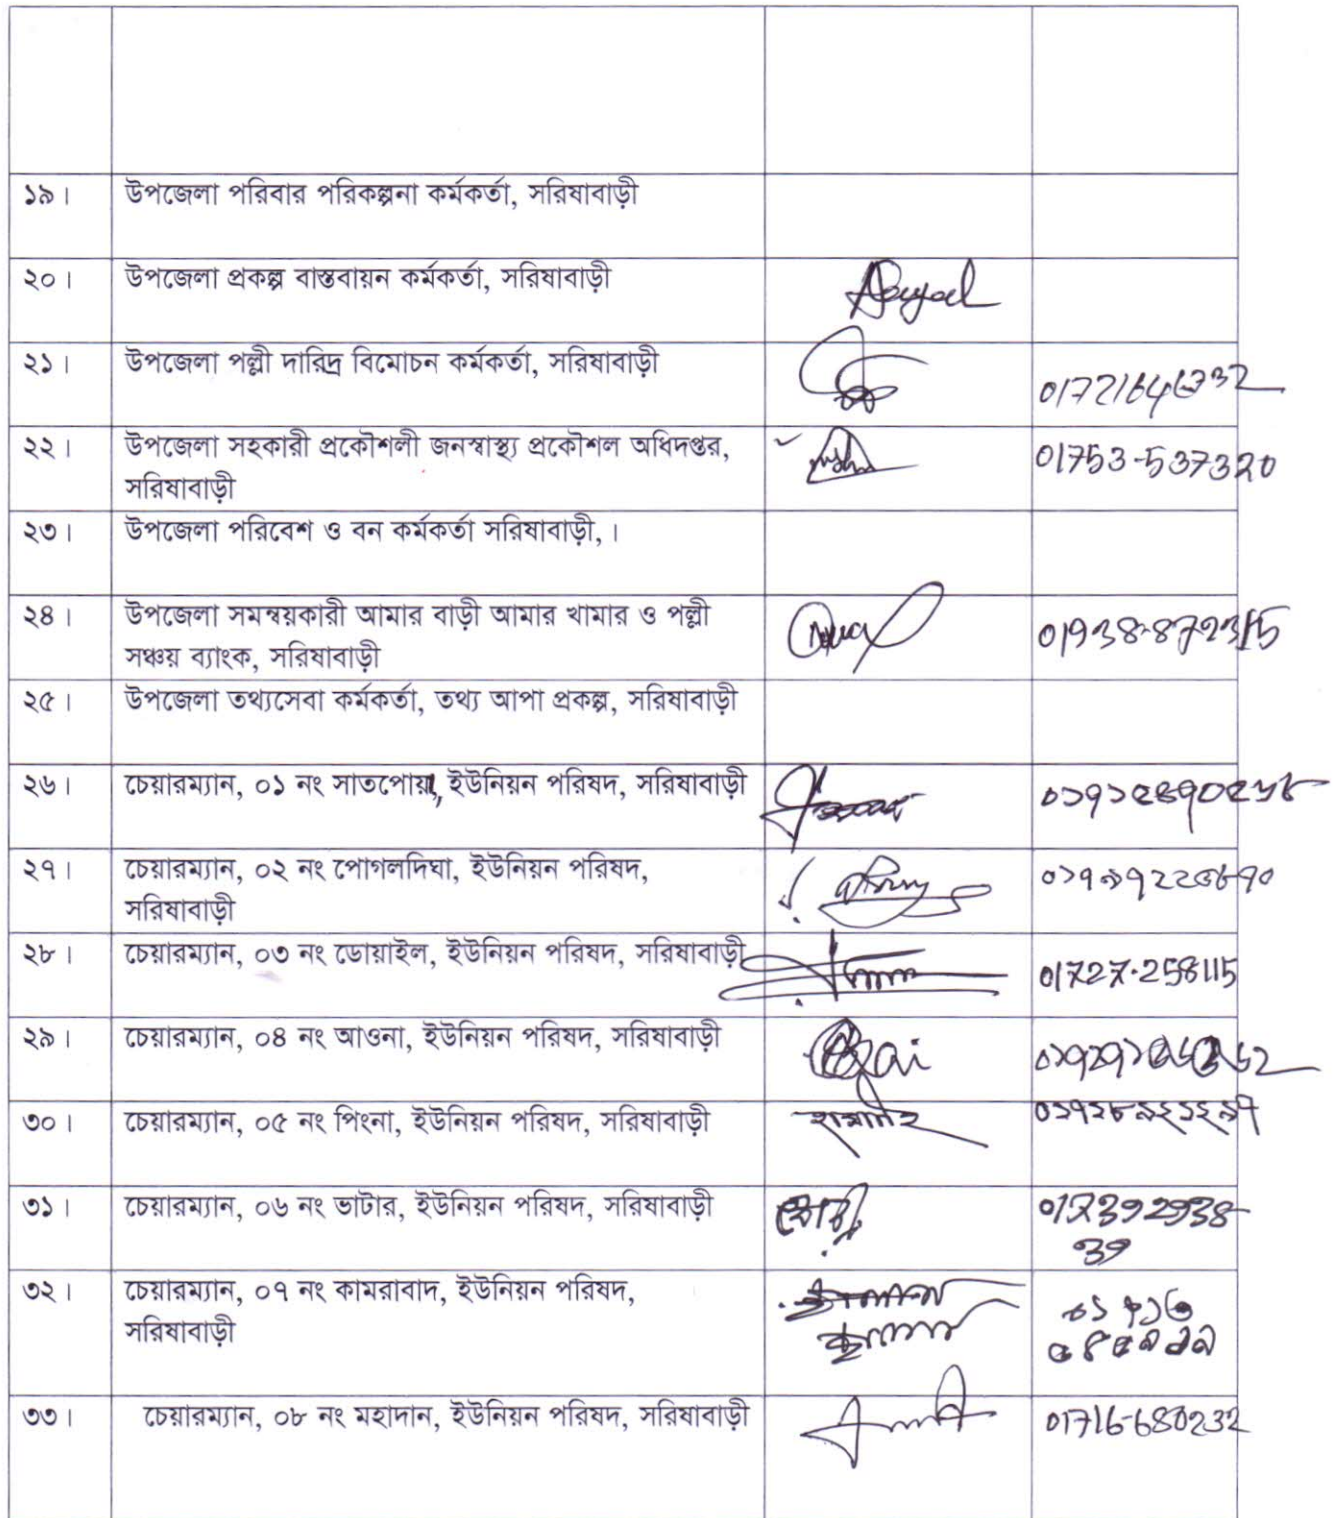 ১৯। উপজেলা পরিবার পরিকল্পনা কর্মকর্তা, সরিষাবাড়ী
২০। উপজেলা প্রকল্প বাস্তবায়ন কর্মকর্তা, সরিষাবাড়ী
২১। উপজেলা পল্লী দারিদ্র বিমোচন কর্মকর্তা, সরিষাবাড়ী
২২। উপজেলা সহকারী প্রকৌশলী জনস্বাস্থ্য প্রকৌশল অধিদপ্তর, 01753-537320
সরিষাবাড়ী
২৩। উপজেলা পরিবেশ ও বন কর্মকর্তা সরিষাবাড়ী, ।
২৪। উপজেলা সমন্বয়কারী আমার বাড়ী আমার খামার ও পল্লী 01938-872315
সঞ্চয় ব্যাংক, সরিষাবাড়ী
২৫। উপজেলা তথ্যসেবা কর্মকর্তা, তথ্য আপা প্রকল্প, সরিষাবাড়ী
২৬। চেয়ারম্যান, ০১ নং সাতপোয়া, ইউনিয়ন পরিষদ, সরিষাবাড়ী
২৭। চেয়ারম্যান, ০২ নং পোগলদিঘা, ইউনিয়ন পরিষদ,
সরিষাবাড়ী
২৮। চেয়ারম্যান, ০৩ নং ডোয়াইল, ইউনিয়ন পরিষদ, সরিষাবাড়ী 01727-258115
২৯। চেয়ারম্যান, ০৪ নং আওনা, ইউনিয়ন পরিষদ, সরিষাবাড়ী
৩০। চেয়ারম্যান, ০৫ নং পিংনা, ইউনিয়ন পরিষদ, সরিষাবাড়ী
৩১। চেয়ারম্যান, ০৬ নং ভাটার, ইউনিয়ন পরিষদ, সরিষাবাড়ী 017392938
39
৩২। চেয়ারম্যান, ০৭ নং কামরাবাদ, ইউনিয়ন পরিষদ,
সরিষাবাড়ী
৩৩। চেয়ারম্যান, ০৮ নং মহাদান, ইউনিয়ন পরিষদ, সরিষাবাড়ী 01716-680232